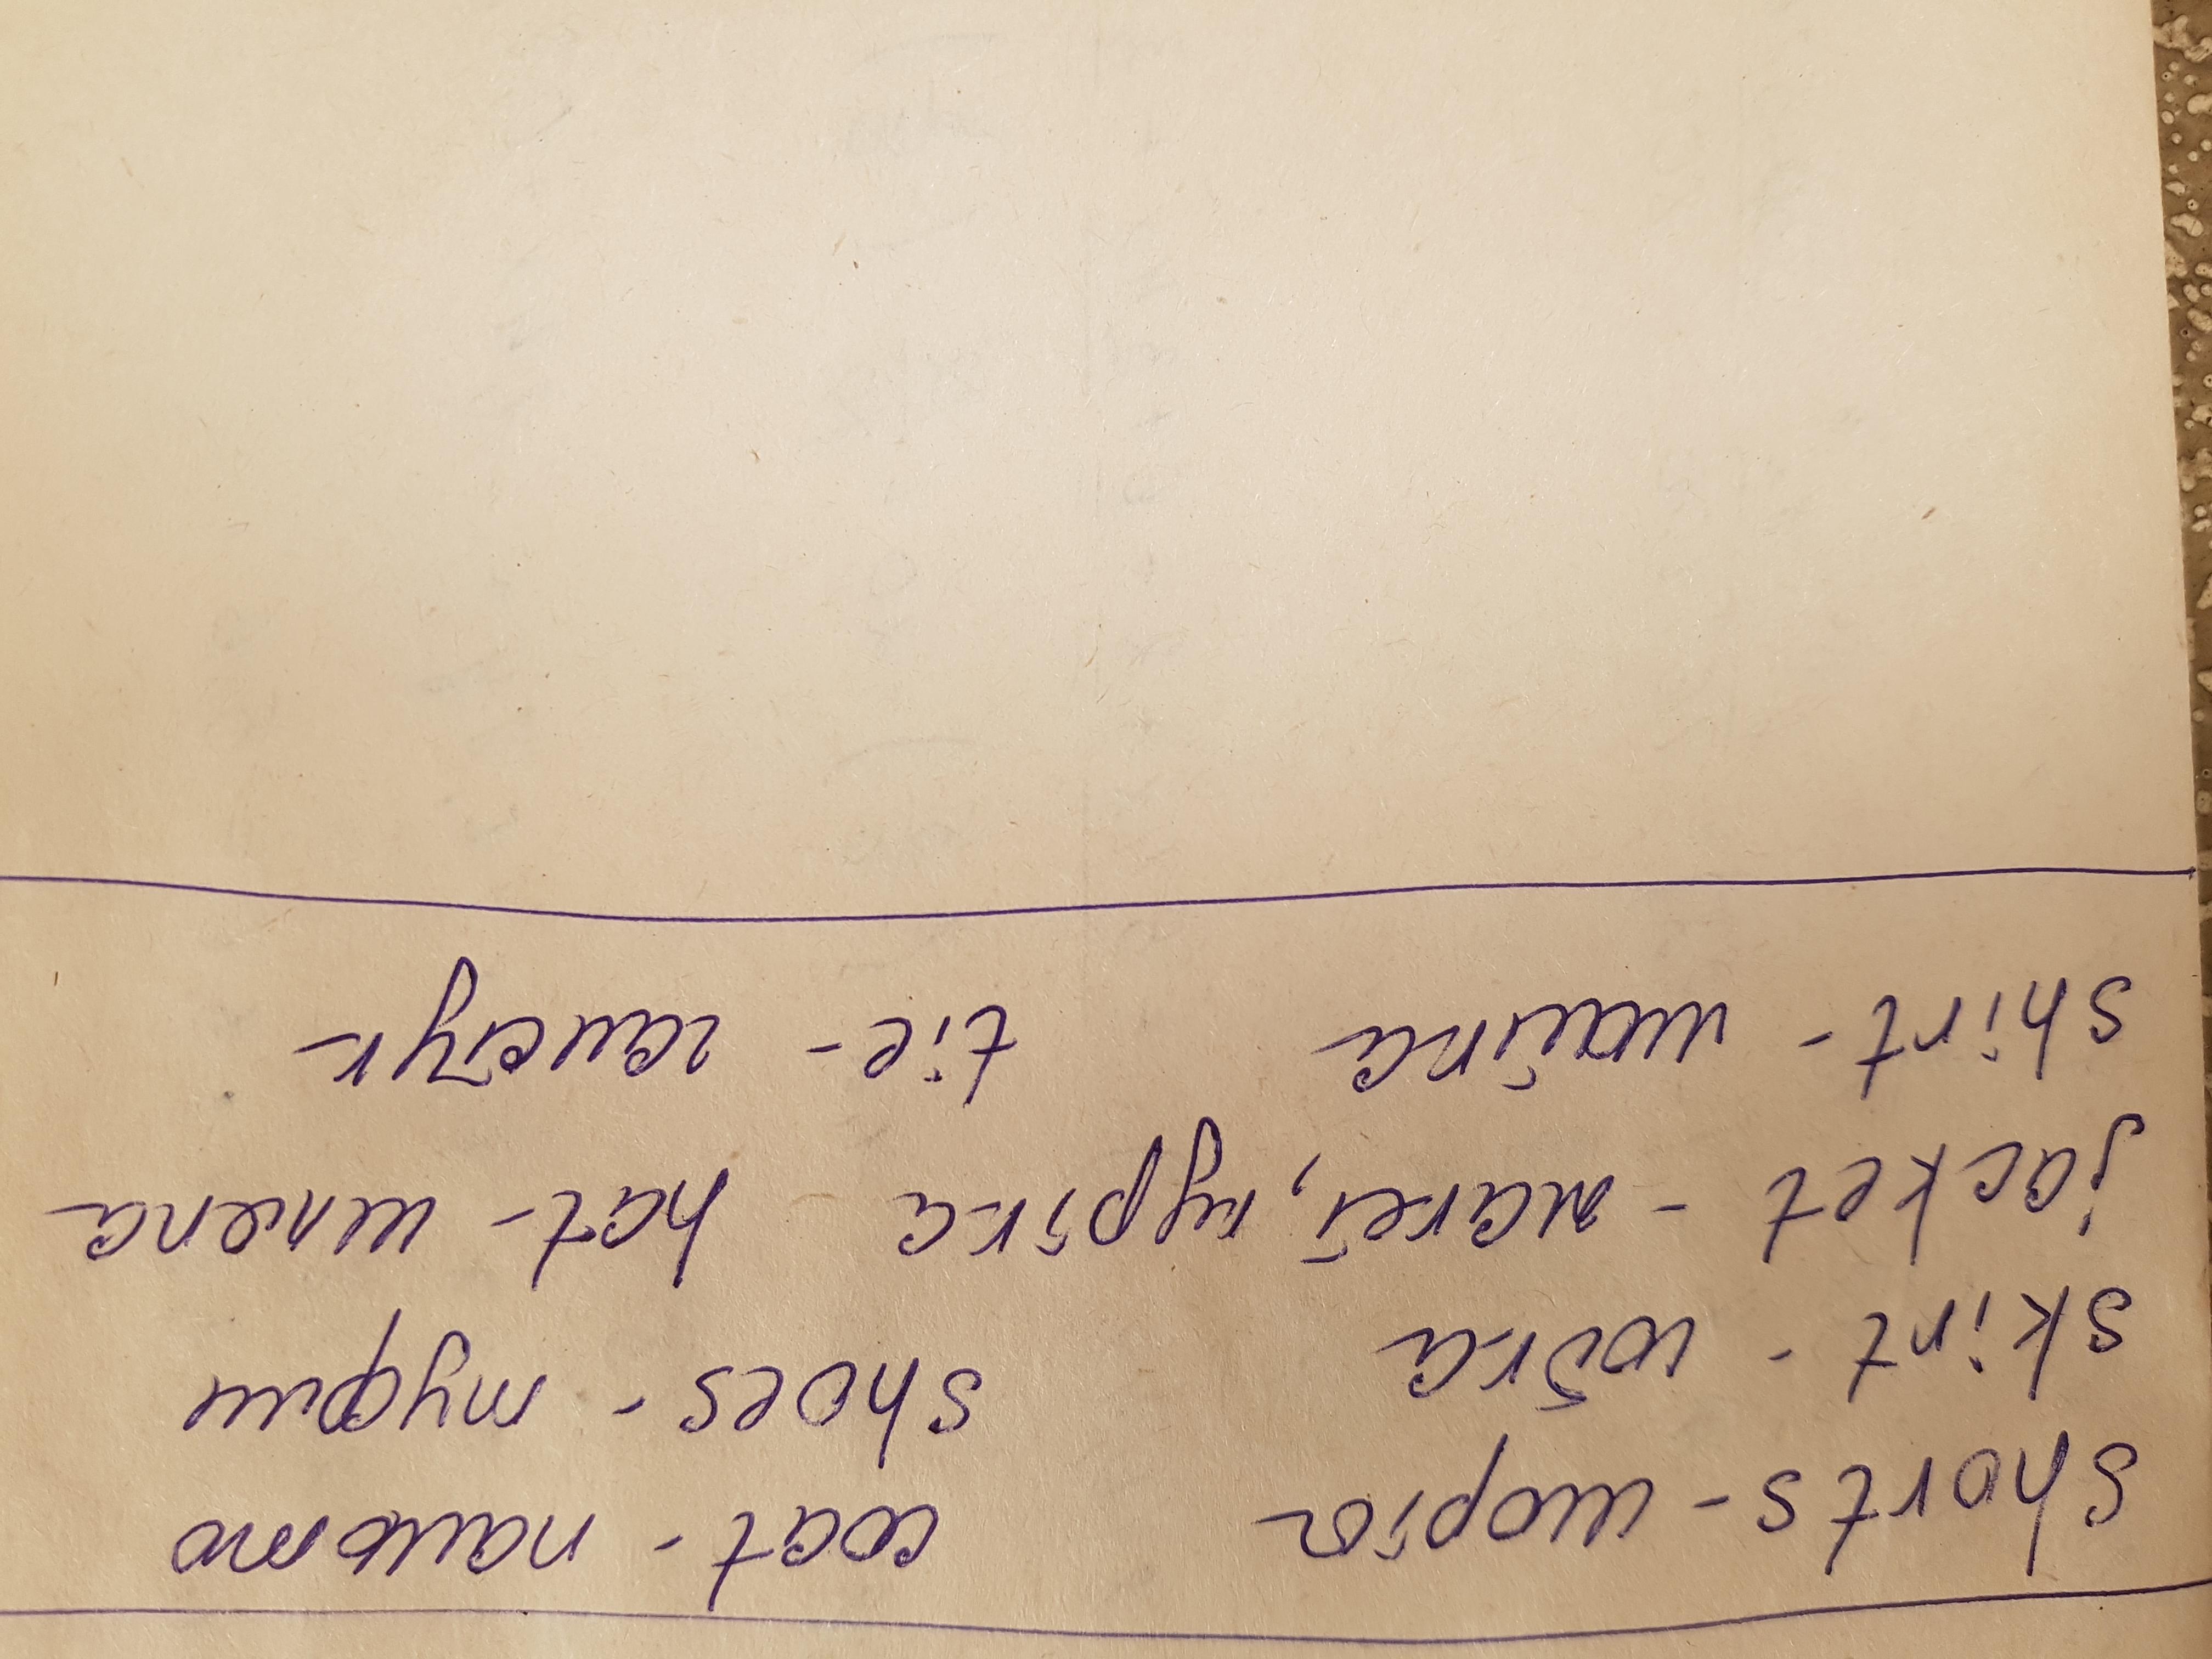 shorts - шорты coat - пальто
skirt - юбка shoes - туфли
jacket - жакет, куртка hat - шляпа
shirt - майка tie - галстук